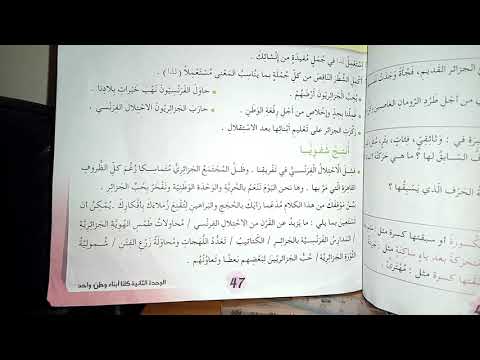 نستعمل لذا في جُمَلٍ مُفيدَةٍ مِن إِنْشائِكَ .
أُكْمِلُ الشَّطْرَ النّاقِصَ مِن كُلِّ جُمْلَةٍ بِما يُناسِبُ المَعْنى مُسْتَعْمِلاً ( لذا ) .
يُحِبُّ الجَزائِرِيّونَ أَرْضَهُمْ .
حاوَلَ الفَرَنْسِيّونَ نَهْبَ خَيْراتِ بِلادِنا .
عَمِلْنا بِجِدٍّ وَإِخْلاصٍ مِن أَجْلِ رِفْعَةِ الوَطَنِ .
حارَبَ الجَزائِرِيّونَ الاحْتِلالَ الفَرَنْسِيَّ .
رَكَّزَتِ الجَزائِرُ عَلى تَعْليمِ أَبْنائِها بَعْدَ الاسْتِقْلالِ .
أُنْتِجُ شَفَوِيًّا
فَشِلَ الاحْتِلالُ الفَرَنْسِيُّ في تَفْريقِنا . وَظَلَّ المُجْتَمَعُ الجَزائِرِيُّ مُتَماسِكًا رُغْمَ كُلِّ الظُّروفِ
القاهِرَةِ الَّتي مَرَّ بِها . وَها نَحْنُ اليَوْمَ نَنْعَمُ بِالحُرِّيَّةِ وَالوَحْدَةِ الوَطَنِيَّةِ وَنَفْخَرُ بِحُبِّ الجَزائِرِ .
مَوْقِفَكَ مِن هذا الكَلامِ مُدَعِّمًا رَأْيَكَ بِالحُجَجِ وَالبَراهينِ لِتُقْنِعَ زُمَلاءَكَ بِأَفْكارِكَ . يُمْكِنُ أَن
تَسْتَعينَ بِما يَلي : ما يَزيدُ عَن القَرْنِ مِن الاحْتِلالِ الفَرَنْسِيِّ / مُحاوَلاتُ طَمْسِ الهُوِيَّةِ الجَزائِرِيَّةِ
/ المَدارِسُ الفَرَنْسِيَّةُ بِالجَزائِرِ / الكَتاتيبُ / تَعَدُّدُ اللَّهَجاتِ وَمُحاوَلَةُ زَرْعِ الفِتَنِ / شُمولِيَّةُ
الثَّوْرَةِ الجَزائِرِيَّةِ / حُبُّ الجَزائِرِيّينَ لِبَعْضِهِمْ بَعْضًا وَتَعاوُنُهُمْ .
47
الوحدة الثانية كلنا أبناء وطن واحد
الجَزائِرِ القَديمِ، فَجْأَةً وَجَدْتُ
مِن أَجْلِ طَرْدِ الرّومانِ الغاصِبينَ
في : وَثائِقِيّ، فِئات، بِئْر،
السّابِقِ لَها ؟ ما هِيَ حَرَكَةُ
الحَرْفِ الَّذي يَسْبِقُها ؟
أو سبقتها كسرة مثل :
بعد ياءٍ ساكنة مثل :
كسرة مثل : مُهْتَرِئ